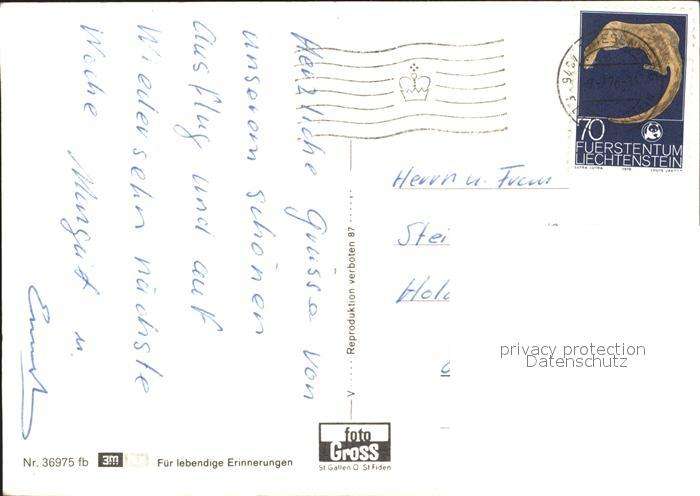 Herzliche Grüsse von
unserem schönen
Ausflug und auf
Wiedersehn nächste
Woche Margrit u.
Ernst
Herrn u. Frau
Stei
Hold
privacy protection
Datenschutz
70
FUERSTENTUM
LIECHTENSTEIN
LUTRA LUTRA 1976
V Reproduktion verboten 87
foto
Gross
St Gallen O St Fiden
Nr. 36975 fb 3m Für lebendige Erinnerungen